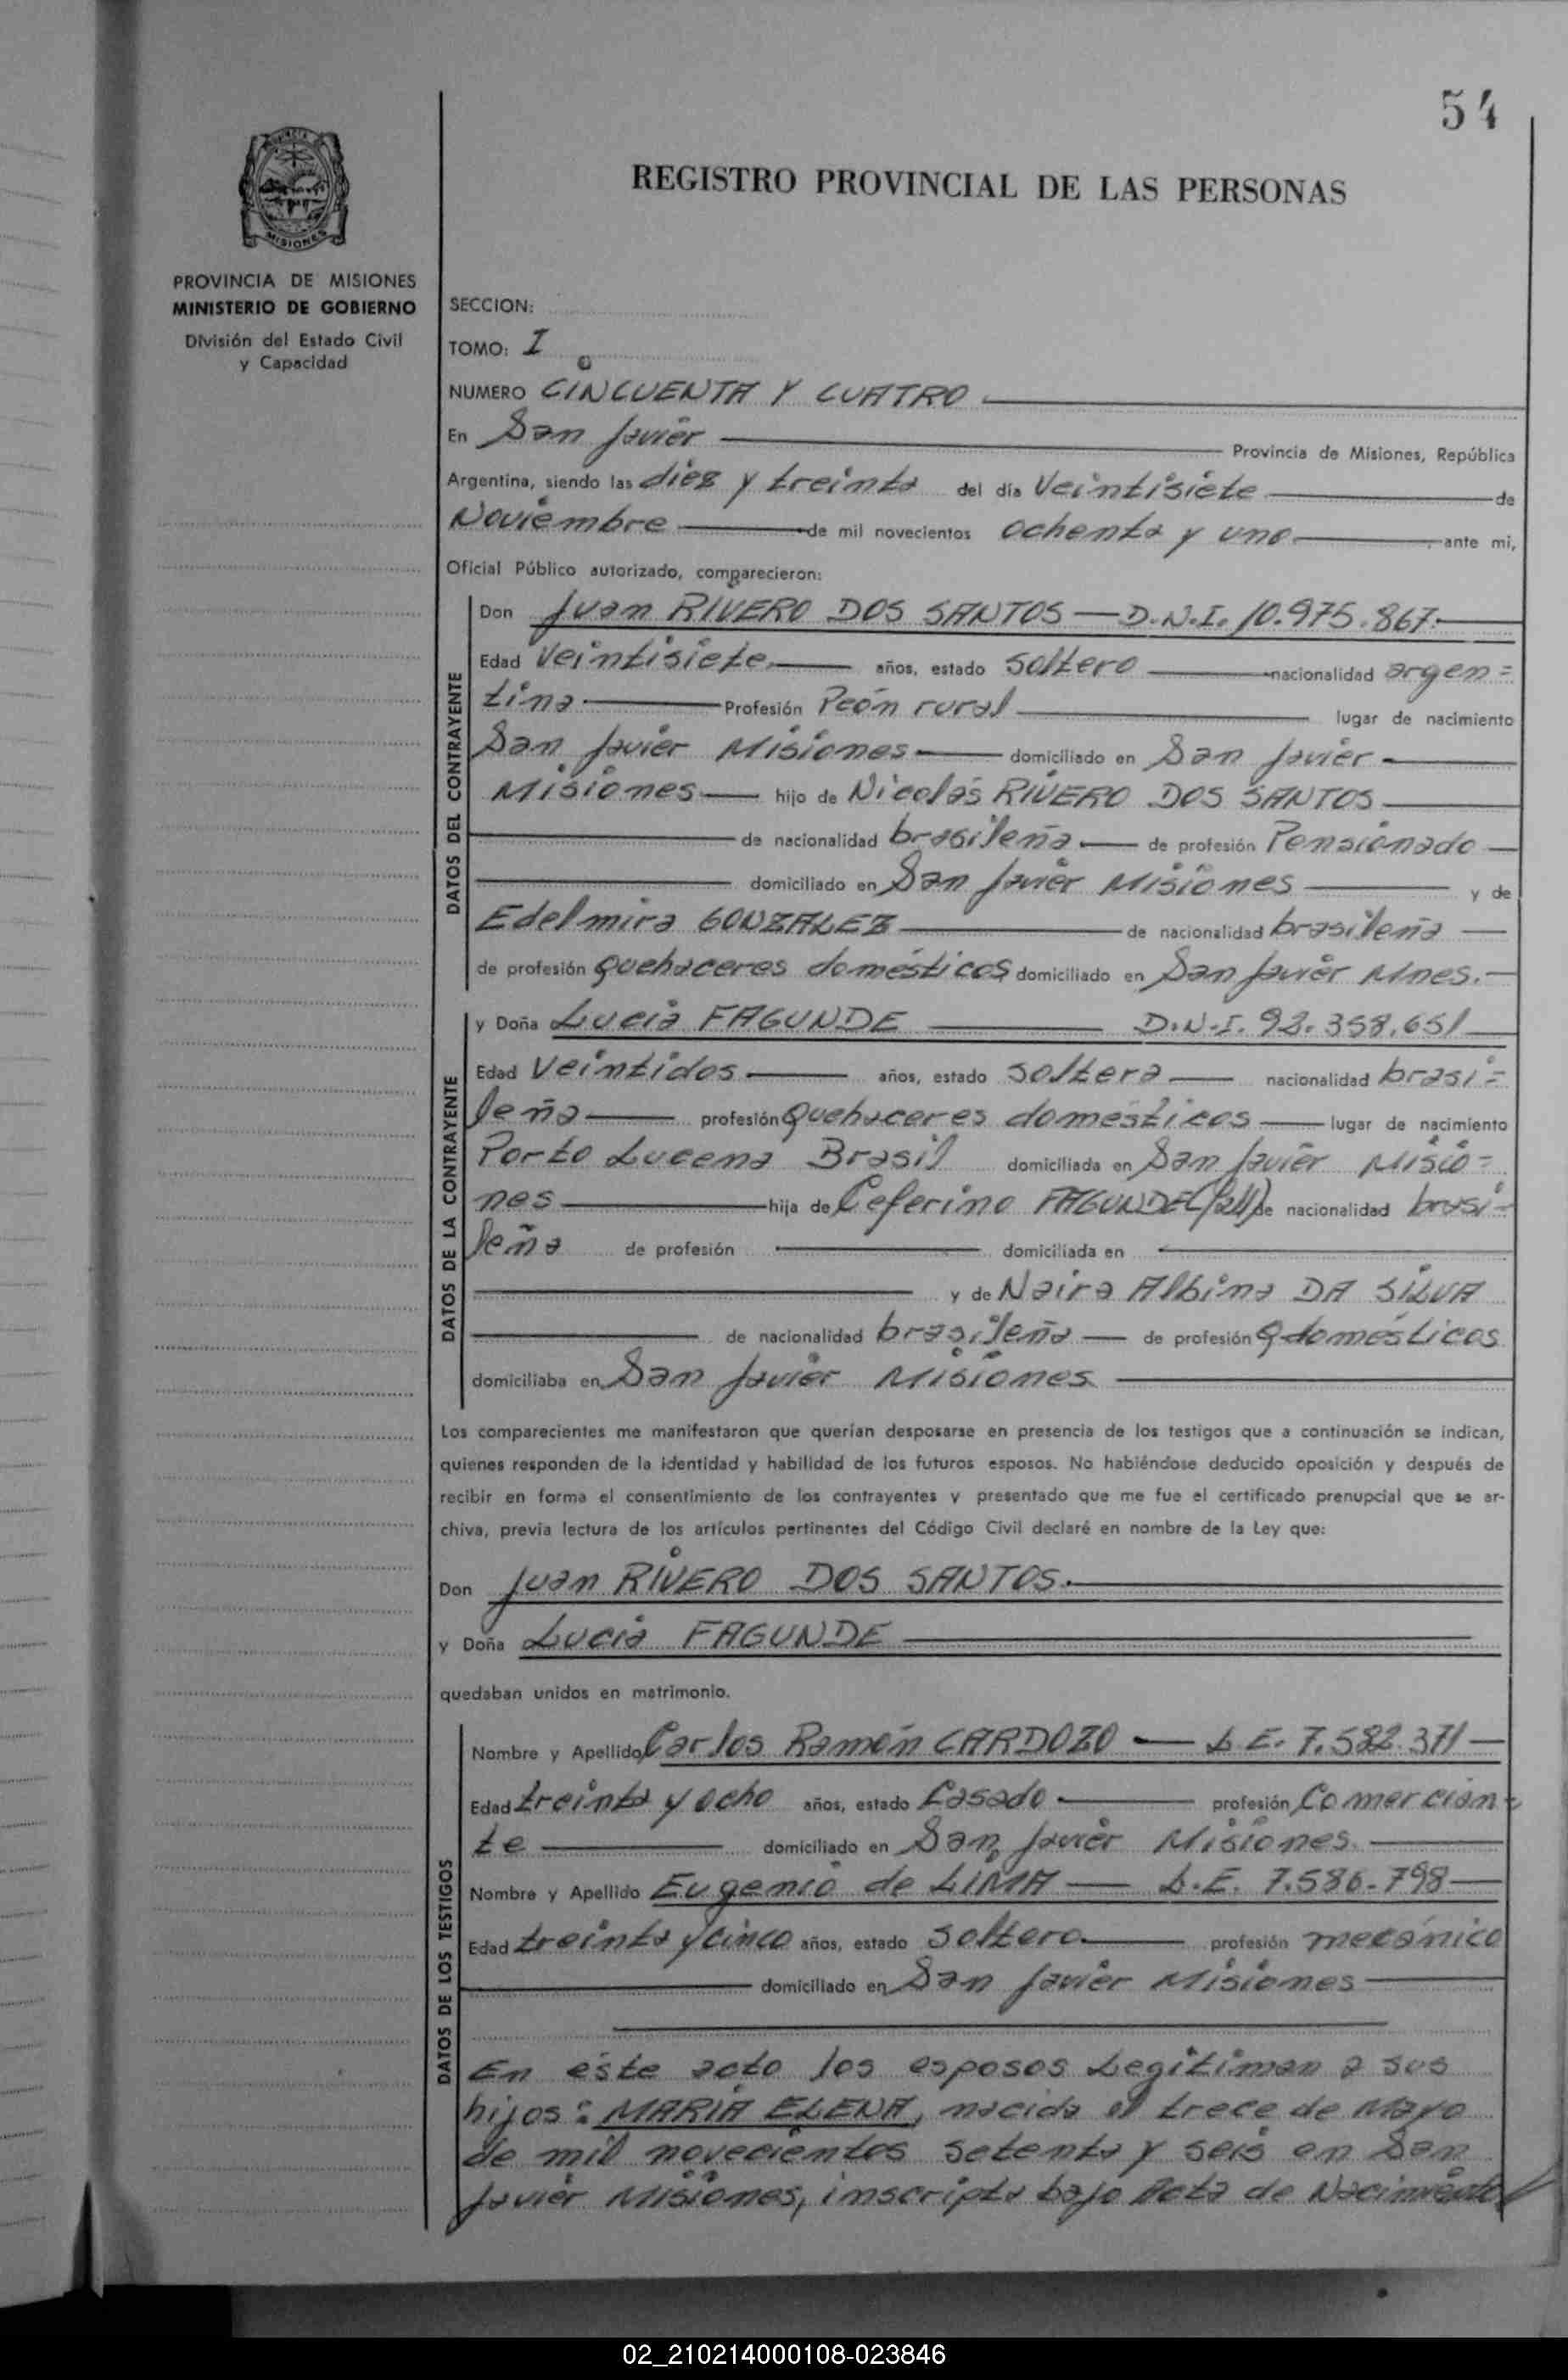 54
REGISTRO PROVINCIAL DE LAS PERSONAS
MISIONES
PROVINCIA DE MISIONES
MINISTERIO DE GOBIERNO
División del Estado Civil
y Capacidad
SECCION:
TOMO: I
NUMERO CINCUENTA Y CUATRO
En San Javier Provincia de Misiones, República
Argentina, siendo las diez y treinta del día Veintisiete de
Noviembre de mil novecientos ochenta y uno ante mi,
Oficial Público autorizado, comparecieron:
DATOS DEL CONTRAYENTE
Don Juan RIVERO DOS SANTOS — D.N.I. 10.975.867.
Edad Veintisiete años, estado soltero nacionalidad argen=
tina Profesión Peón rural lugar de nacimiento
San Javier Misiones domiciliado en San Javier
Misiones hijo de Nicolás RIVERO DOS SANTOS
de nacionalidad brasileña de profesión Pensionado
domiciliado en San Javier Misiones y de
Edelmira GONZALEZ de nacionalidad brasileña
de profesión quehaceres domésticos domiciliado en San Javier Mnes.
DATOS DE LA CONTRAYENTE
y Doña Lucia FAGUNDE D.N.I. 92.358.651
Edad Veintidos años, estado soltera nacionalidad brasi=
leña profesión Quehaceres domésticos lugar de nacimiento
Porto Lucena Brasil domiciliada en San Javier Misio=
nes hija de Ceferino FAGUNDE de nacionalidad brasi=
leña de profesión domiciliada en
y de Naira Albina DA SILVA
de nacionalidad brasileña de profesión Q domésticos
domiciliaba en San Javier Misiones
Los comparecientes me manifestaron que querían desposarse en presencia de los testigos que a continuación se indican,
quienes responden de la identidad y habilidad de los futuros esposos. No habiéndose deducido oposición y después de
recibir en forma el consentimiento de los contrayentes y presentado que me fue el certificado prenupcial que se ar-
chiva, previa lectura de los artículos pertinentes del Código Civil declaré en nombre de la Ley que:
Don Juan RIVERO DOS SANTOS.
y Doña Lucia FAGUNDE
quedaban unidos en matrimonio.
DATOS DE LOS TESTIGOS
Nombre y Apellido Carlos Ramón CARDOZO — L.E. 7.582.371
Edad treinta y ocho años, estado Casado profesión Comercian=
te domiciliado en San Javier Misiones
Nombre y Apellido Eugenio de LIMA — L.E. 7.586.798
Edad treinta y cinco años, estado soltero profesión mecánico
domiciliado en San Javier Misiones
En este acto los esposos Legitiman a sus
hijos: MARIA ELENA, nacida el trece de Mayo
de mil novecientos setenta y seis en San
Javier Misiones, inscripta bajo Acta de Nacimiento
02_210214000108-023846